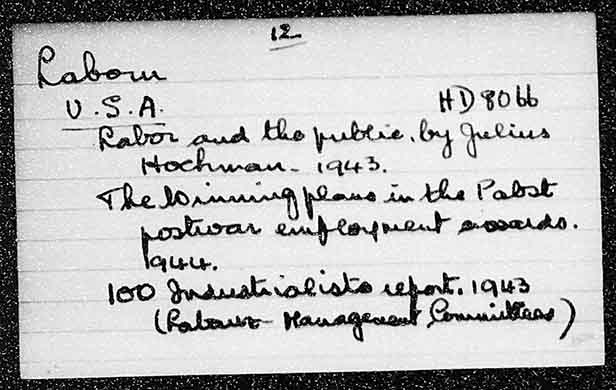 12
Labour
U.S.A. HD 8066
Labor and the public, by Julius
Hochman. 1943.
The Winning plans in the Pabst
postwar employment awards.
1944.
100 Industrialists report. 1943
(Labour-Management Committees)